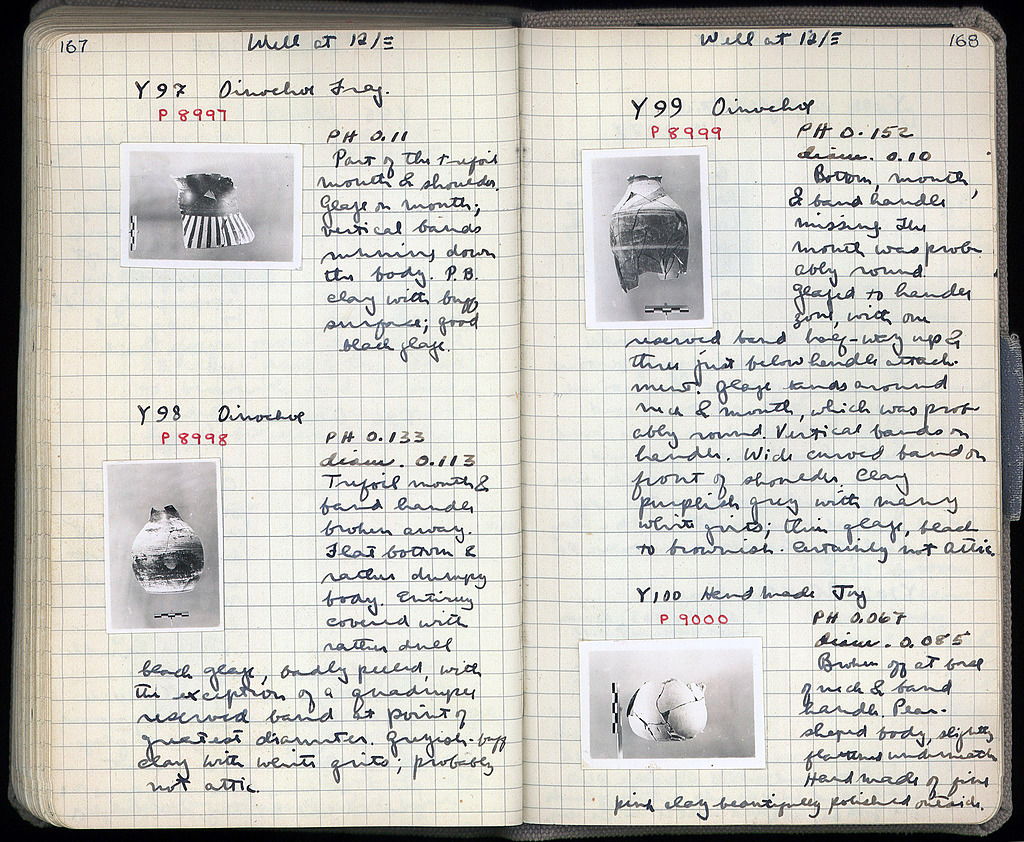 167
Well at 12/Ξ
Y97 Oinochoe Frag.
P 8997
PH 0.11
Part of the trefoil
mouth & shoulder.
Glaze on mouth;
vertical bands
running down
the body. P.B.
clay with buff
surface; good
black glaze.
Y98 Oinochoe
P 8998
PH 0.133
diam. 0.113
Trefoil mouth &
band handle
broken away.
Flat bottom &
rather dumpy
body. Entirely
covered with
rather dull
black glaze, badly peeled, with
the exception of a quadruple
reserved band at point of
greatest diameter. Greyish-buff
clay with white grits; probably
not Attic.
Well at 12/Ξ
168
Y99 Oinochoe
P 8999
PH 0.152
diam. 0.10
Bottom, mouth,
& band handle
missing. The
mouth was prob-
ably round.
Glazed to handle
zone, with one
reserved band half-way up &
three just below handle attach-
ment. Glaze bands around
neck & mouth, which was prob-
ably round. Vertical bands on
handle. Wide curved band on
front of shoulder. Clay
purplish grey with many
white grits; thin glaze, black
to brownish. Certainly not Attic.
Y100 Hand made Jug
P 9000
PH 0.067
Diam. 0.085
Broken off at base
of neck & band
handle. Pear-
shaped body, slightly
flattened underneath.
Hand made of fine
pink clay beautifully polished outside.